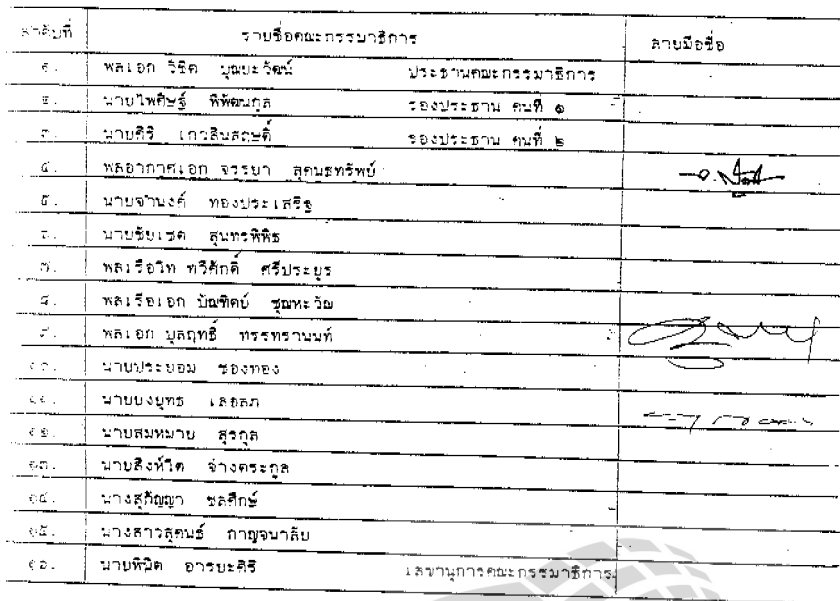 ลำดับที่ รายชื่อคณะกรรมาธิการ ลายมือชื่อ
๑. พลเอก วิชิต บุณยะวัฒน์ ประธานคณะกรรมาธิการ
๒. นายไพศิษฐ์ พิพัฒนกุล รองประธาน คนที่ ๑
๓. นายศิริ เกวลินสฤษดิ์ รองประธาน คนที่ ๒
๔. พลอากาศเอก จรรยา สุคนธทรัพย์
๕. นายจำนงค์ ทองประเสริฐ
๖. นายชัยเชต สุนทรพิพิธ
๗. พลเรือโท ทวีศักดิ์ ศรีประยูร
๘. พลเรือเอก บัณฑิตย์ ชุณหะวัณ
๙. พลเอก บุลฤทธิ์ ทรรทรานนท์
๑๐. นายประยอม ซองทอง
๑๑. นายยงยุทธ เลอลภ
๑๒. นายสมหมาย สุรกุล
๑๓. นายสิงห์โต จ่างตระกูล
๑๔. นางสุกัญญา ชลศึกษ์
๑๕. นางสาวสุคนธ์ กาญจนาลัย
๑๖. นายพินิต อารยะศิริ เลขานุการคณะกรรมาธิการ